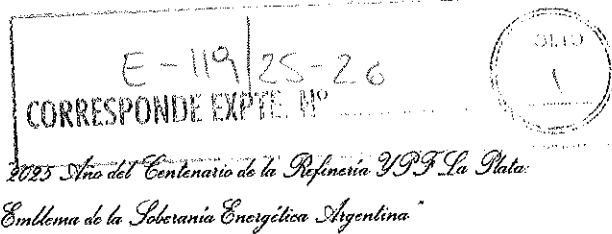 E-119/25-26
CORRESPONDE EXPTE. Nº
FOLIO
1
"2025 Año del Centenario de la Refinería YPF La Plata:
Emblema de la Soberanía Energética Argentina"